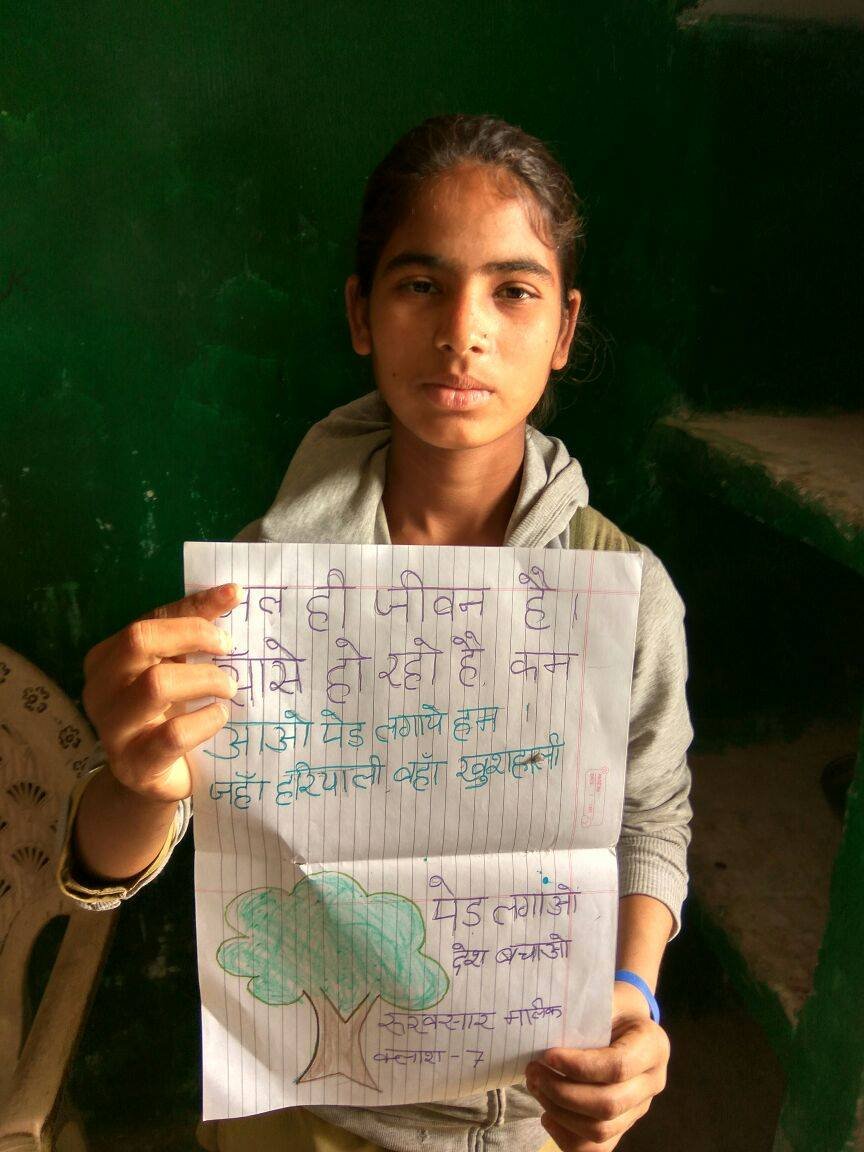 जल ही जीवन है।
साँसे हो रही है, कम
आओ पेड लगाये हम !
जहाँ हरियाली वहाँ खुशहाली
पेड लगांओ
देश बचाओ
रुखसार मालिक
क्लाश - 7